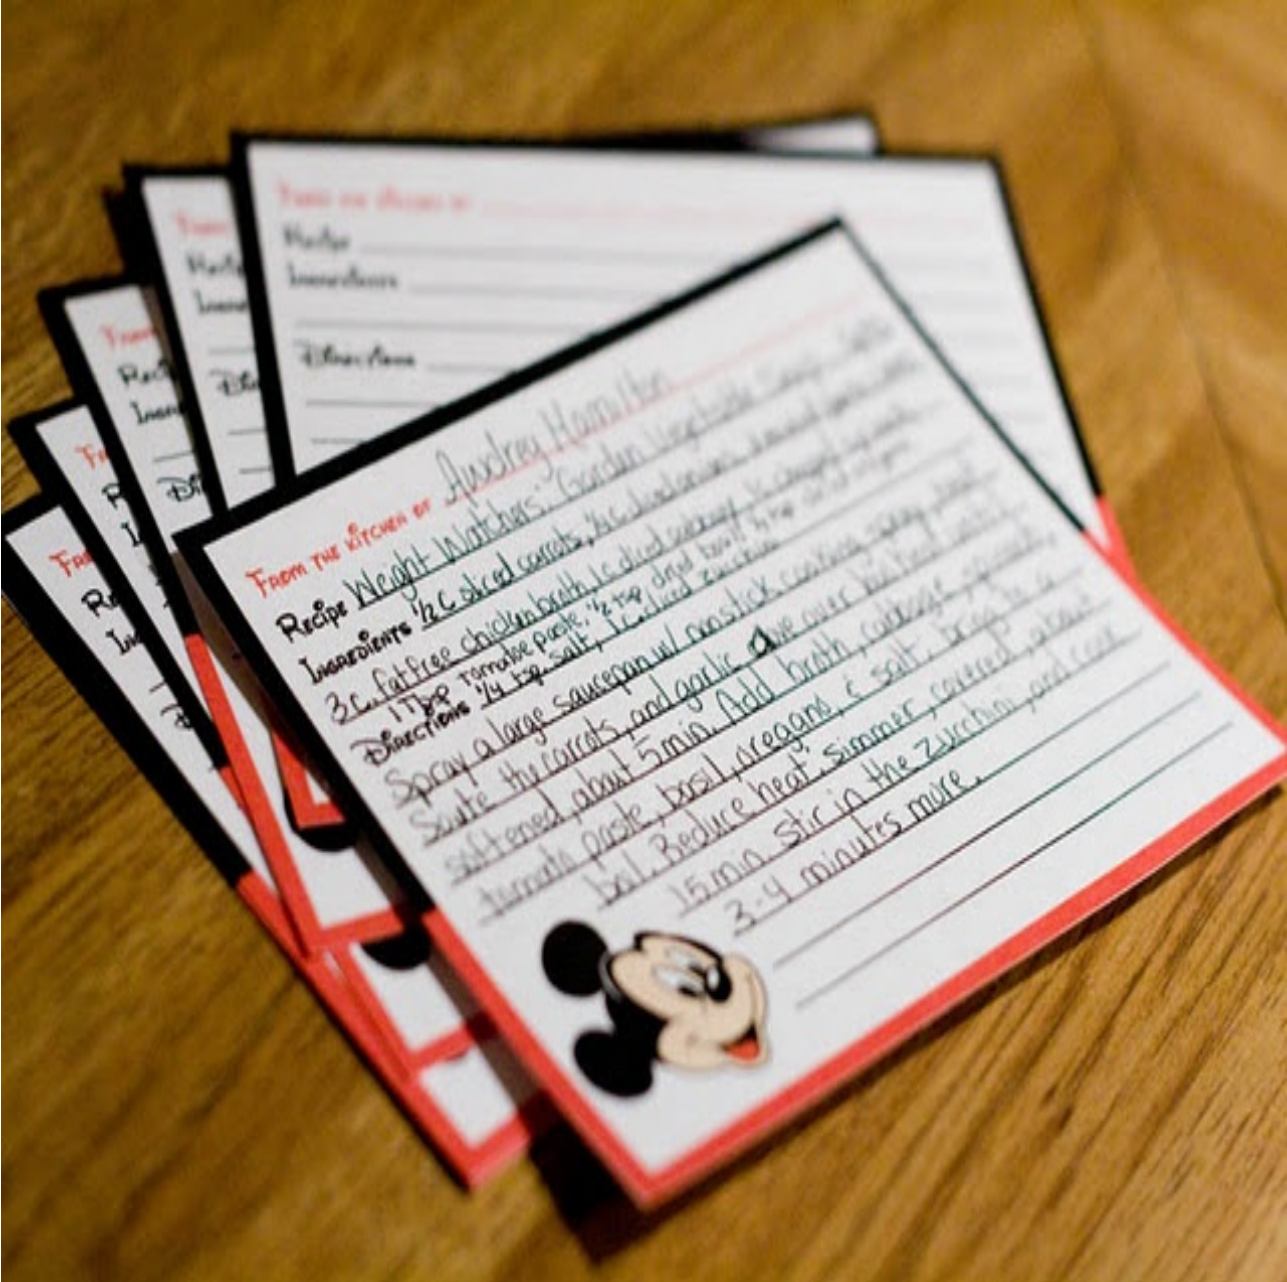 From the kitchen of
Recipe
Ingredients
Directions
From the kitchen of Audrey Hamilton
Recipe Weight Watchers: Garden Vegetable Soup
Ingredients 1/2 c sliced carrots, 1/4 c. diced onions
3 c. fat free chicken broth, 1 c. diced cabbage, 1/2 c.
1 Tbsp tomatoe paste, 1/2 tsp dried basil, 1/4 tsp dried oregano
Directions 1/4 tsp salt, 1/2 c. diced zucchini
Spray a large saucepan w/ nonstick cooking spray, heat
Saute the carrots, and garlic over low heat until
softened, about 5 min. Add broth, cabbage,
tomato paste, basil, oregano, & salt. bring to a
boil. Reduce heat, simmer, covered, about
15 min. Stir in the zucchini, and cook
3-4 minutes more.